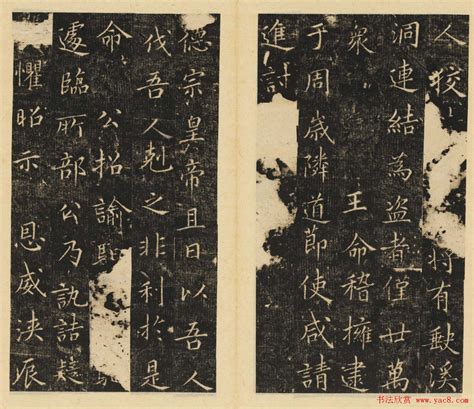 人狡 將有溪
洞連結為盜者僅廿萬
衆 王命稽擁逮
于周歲隣道節使咸請
進討
德宗皇帝且曰以吾人
伐吾人剋之非利於是
命 公招諭
遽臨所部公乃訊詰疑
懼昭示 恩威浹辰
书法欣赏 www.yac8.com